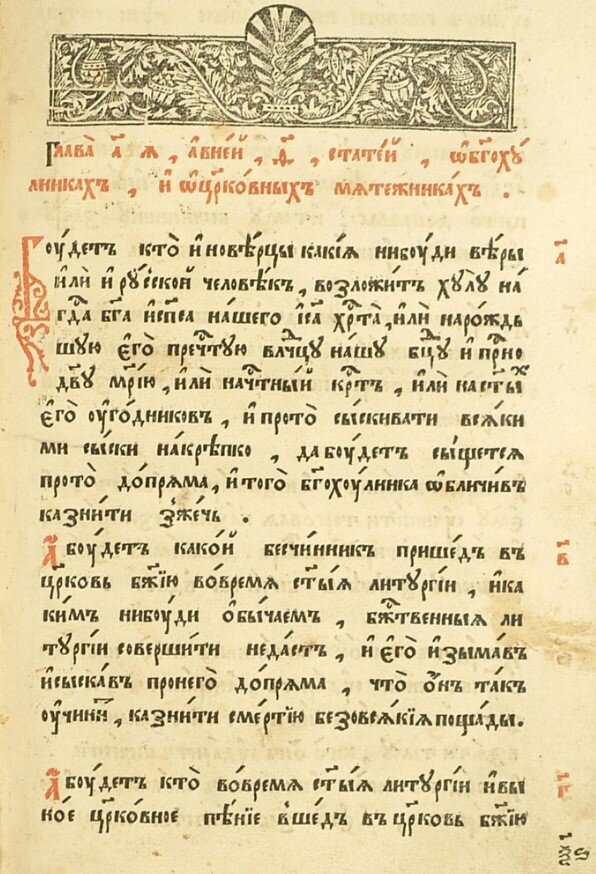 Глава̀ а҃ я, а҆вне́й, ѳ҃, стате́й, ѡ҆бг҃охꙋ́
лникахъ, и҆ ѡ҆цр҃ко́вныхъ мѧте́жникахъ.
Бꙋ́детъ кто̀ и҆нове́рцы какі́ѧ нибꙋди вѣ́ры
и҆лѝ и҆рꙋ́сской человѣ́къ, возложи́тъ хꙋлꙋ̀ на́
гд҃а бг҃а и҆сп҃са на́шего і҆с҃а хрⷭ҇та̀, и҆лѝ наро́ждь
шꙋю є҆го̀ пречⷭ҇тꙋю влⷣчцꙋ на́шꙋ бцⷣꙋ и҆ прⷭ҇но
дв҃ꙋ мр҃і́ю, и҆лѝ начⷭ҇тны́й крⷭ҇тъ, и҆лѝ на ст҃ы́хъ
є҆го̀ ᲂу҆го́дниковъ, и҆ прото̀ сы́скивати всѧ́ки
ми сы́ски накрѣ́пко, да бꙋ́детъ сы́щетсѧ
прото̀ до́прѧма, и҆ того̀ бг҃охꙋ́лника ѡ҆бличи́въ
казни́ти зже́чь.
А҆ бꙋ́детъ како́й бесчи́нникъ прише́дъ въ
цр҃ковь бж҃їю во́времѧ ст҃ы́ѧ литꙋргі́и, и҆ка
ки́мъ нибꙋди ѡ҆бы́чаемъ, бжⷭ҇твенныѧ ли
тꙋргі́и соверши́ти неда́стъ, и҆ є҆го̀ и҆зыма́въ
и҆сыска́въ пронего̀ до́прѧма, что̀ ѻ҆́нъ та́къ
ᲂу҆чини́т, казни́ти сме́ртїю безовсѧ́кїѧ поща́ды.
А҆ бꙋ́детъ кто̀ во́времѧ ст҃ы́ѧ литꙋргі́и и҆вы
но́е цр҃ко́вное пѣ́нїе вше́дъ въ цр҃ковь бж҃їю
а҃
в҃
г҃